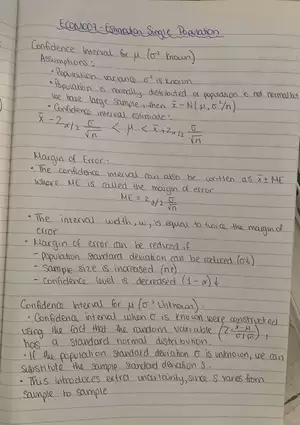 ECON1007 - Estimation Single Population
Confidence Interval for μ (σ² known)
Assumptions:
• Population variance σ² is known
• Population is normally distributed or population is not normal but
we have large sample, then x̄ ~ N(μ, σ²/n)
• Confidence interval estimate:
x̄ - Zα/2 σ/√n < μ < x̄ + Zα/2 σ/√n
Margin of Error:
• The confidence interval can also be written as x̄ ± ME
where ME is called the margin of error
ME = Zα/2 σ/√n
• The interval width, w, is equal to twice the margin of
error
• Margin of error can be reduced if
- population standard deviation can be reduced (σ↓)
- sample size is increased (n↑)
- confidence level is decreased (1-α)↓
Confidence Interval for μ (σ² Unknown):
• Confidence interval when σ is known were constructed
using the fact that the random variable (Z = x̄-μ / σ/√n),
has a standard normal distribution.
• If the population standard deviation σ is unknown, we can
substitute the sample standard deviation s.
• This introduces extra uncertainty, since s varies from
sample to sample